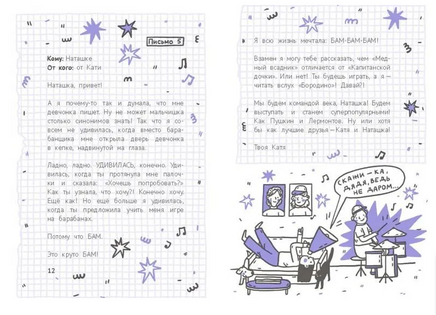 Письмо 5
Кому: Наташке
От кого: от Кати
Наташка, привет!
А я почему-то так и думала, что мне
девчонка пишет. Ну не может мальчишка
столько синонимов знать! Так что я со-
всем не удивилась, когда вместо бара-
банщика мне открыла дверь девчонка
в кепке, надвинутой на глаза.
Ладно, ладно. УДИВИЛАСЬ, конечно. Уди-
вилась, когда ты протянула мне палоч-
ки и сказала: «Хочешь попробовать?»
Как ты узнала, что хочу?! Конечно хочу.
Ещё как! Но ещё больше я удивилась,
когда ты предложила учить меня игре
на барабанах.
Потому что БАМ...
Это круто БАМ!
12
Я всю жизнь мечтала: БАМ-БАМ-БАМ!
Взамен я могу тебе рассказать, чем «Мед-
ный всадник» отличается от «Капитанской
дочки». Или нет! Ты будешь играть, а я —
читать вслух «Бородино»! Давай?!
Мы будем командой века, Наташка! Будем
выступать и станем суперпопулярными!
Как Пушкин и Лермонтов. Ну или хотя
бы как лучшие друзья — Катя и Наташка!
Твоя Катя
СКАЖИ-КА,
ДЯДЯ, ВЕДЬ
НЕ ДАРОМ...